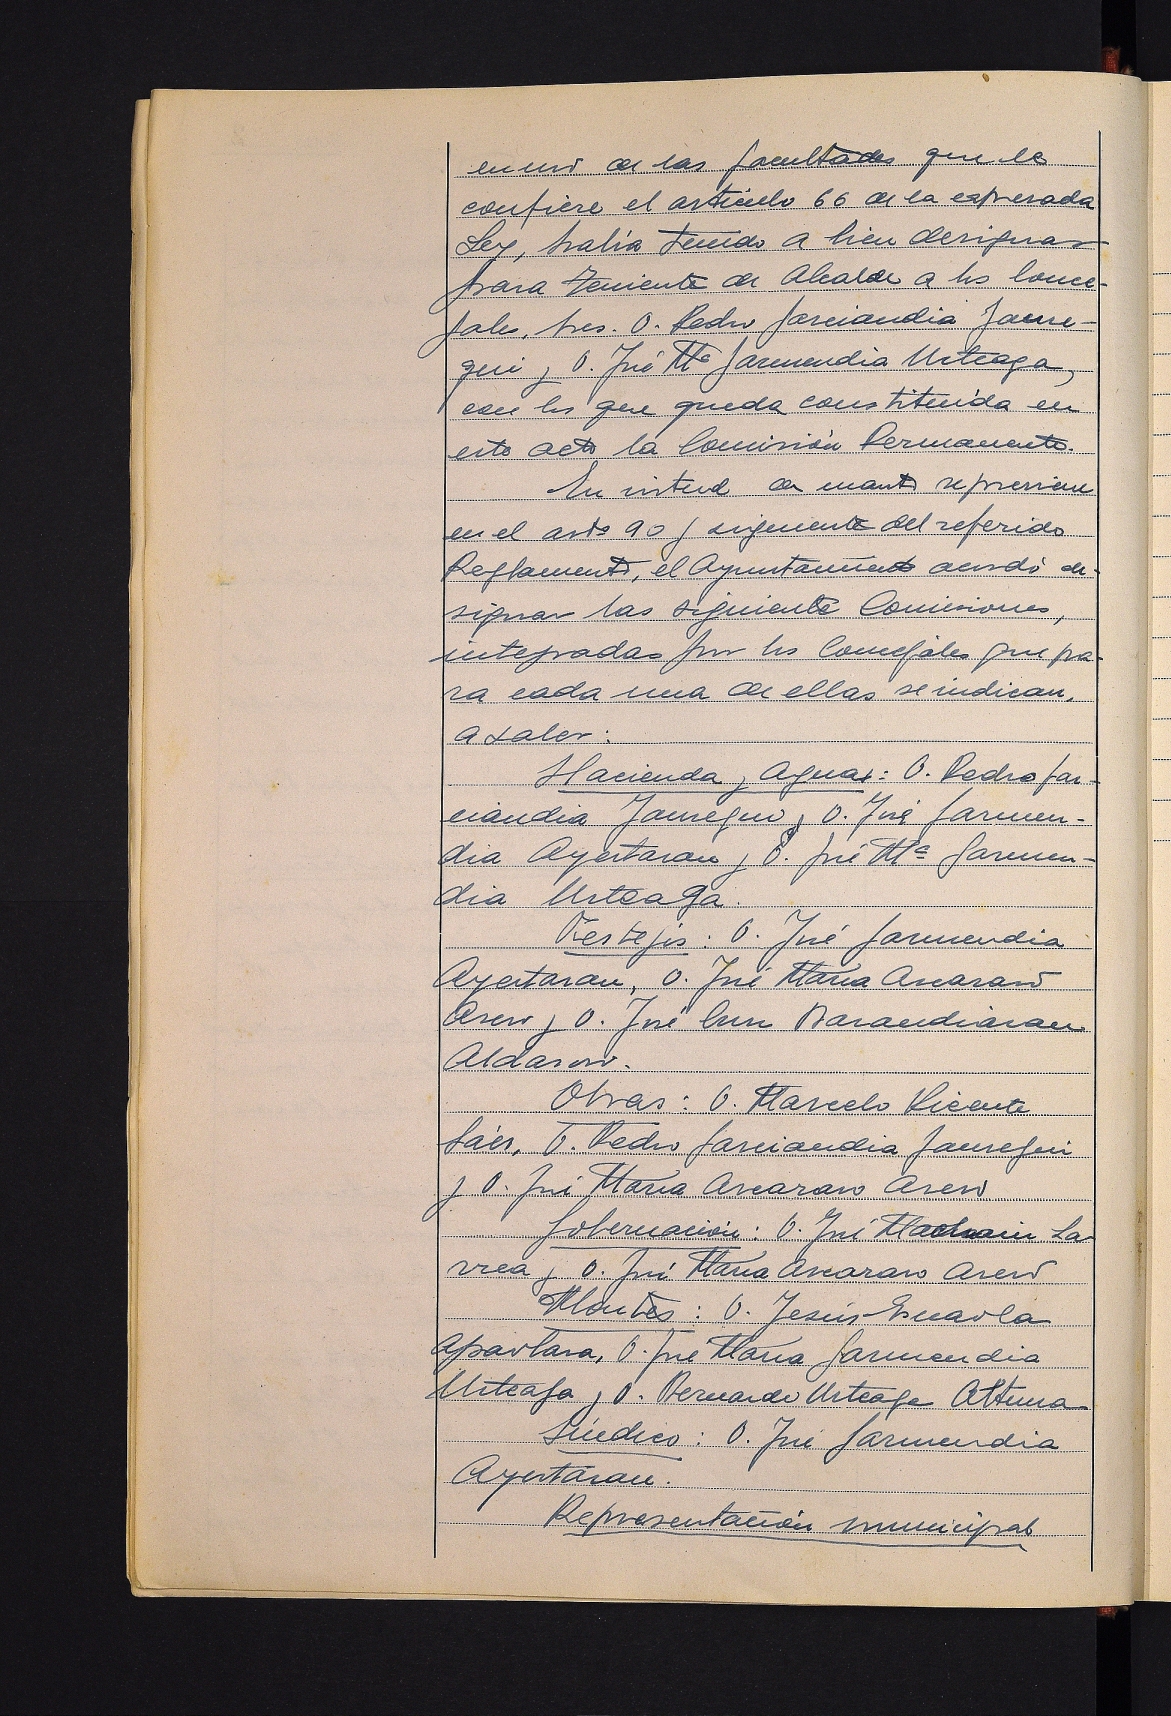 en uso de las facultades que le
confiere el artículo 66 de la expresada
Ley, había tenido a bien designar
para Teniente de Alcalde a los Conce-
jales, Sres. D. Pedro Garciandia Jaure-
gui y D. José Mª Garmendia Urteaga,
con los que queda constituida en
este acto la Comisión Permanente.
En virtud de cuanto se previene
en el artº 90 y siguiente del referido
Reglamento, el Ayuntamiento acordó de-
signar las siguiente Comisiones,
integradas por los Concejales que pa-
ra cada una de ellas se indican,
a saber:
Hacienda y Aguas: D. Pedro Gar-
ciandia Jauregui, D. José Garmen-
dia Ayestaran y D. José Mª Garmen-
dia Urteaga.
Festejos: D. José Garmendia
Ayestaran, D. José María Ascaraso
Asero y D. José Luis Barandiaran
Aldasoro.
Obras: D. Marcelo Vicente
Sáez, D. Pedro Garciandia Jauregui
y D. José María Ascaraso Asero
Gobernación: D. José Machain La-
rrea y D. José María Ascaraso Asero
Montes: D. Jesús
D. José María Garmendia
Urteaga y D. Bernardo Urteaga Altuna
Síndico: D. José Garmendia
Ayestaran.
Representación municipal